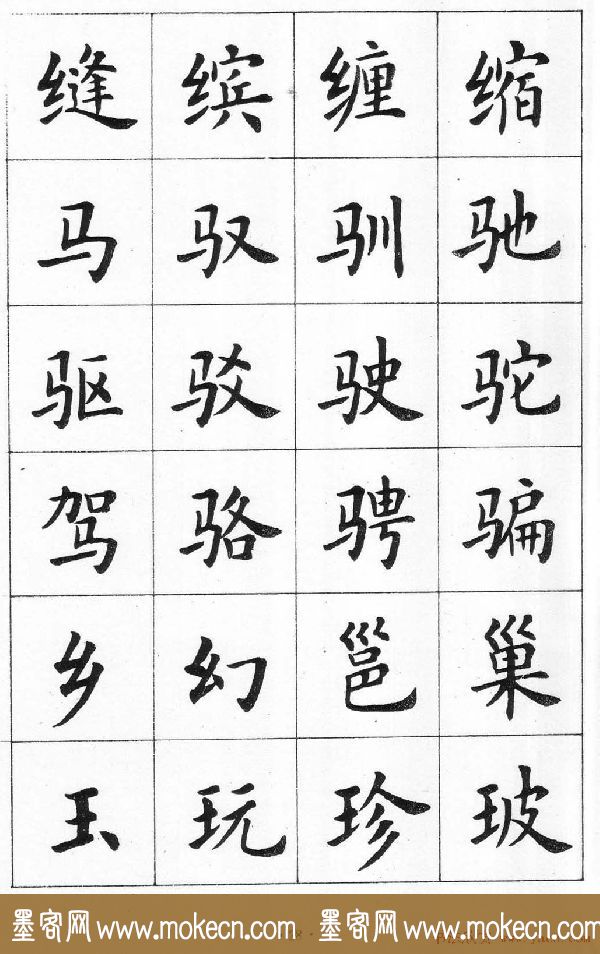 缝 缤 缠 缩
马 驭 驯 驰
驱 驳 驶 驼
驾 骆 骋 骗
乡 幻 邕 巢
玉 玩 珍 玻
墨客网 www.mokecn.com 墨客网 www.mokecn.com